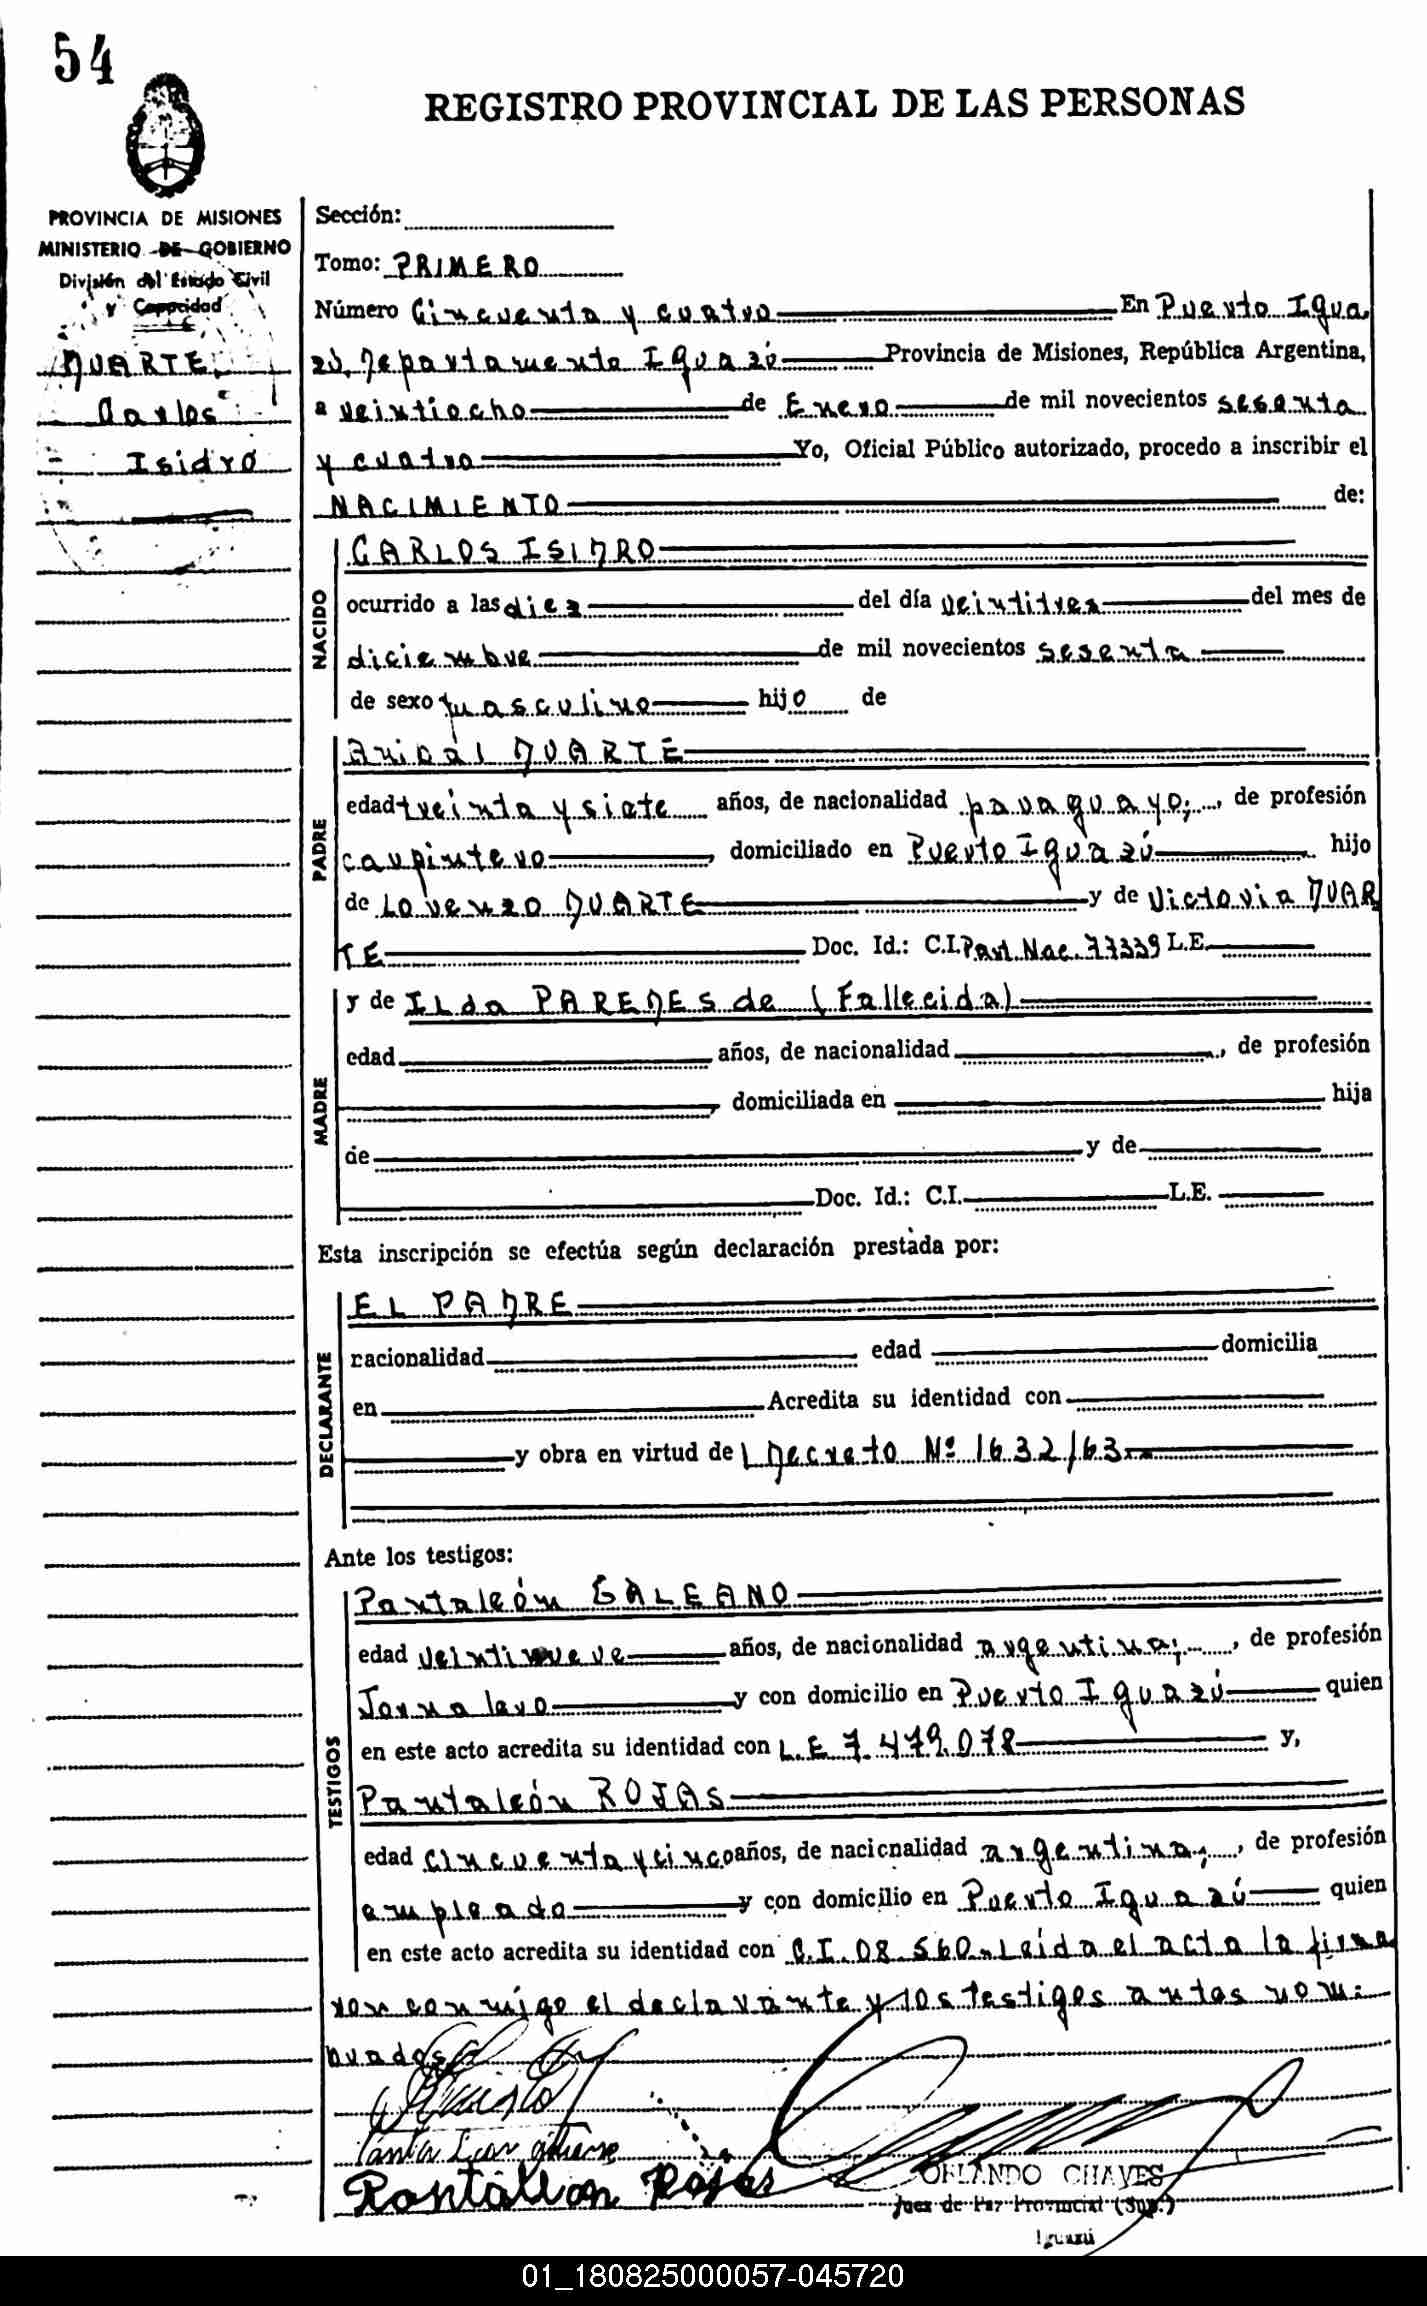 54
REGISTRO PROVINCIAL DE LAS PERSONAS
PROVINCIA DE MISIONES
MINISTERIO DE GOBIERNO
División del Estado Civil
y Capacidad
DUARTE,
Carlos
Isidro
Sección:
Tomo: PRIMERO
Número Cincuenta y cuatro En Puerto Igua
zú, Departamento Iguazú Provincia de Misiones, República Argentina,
a veintiocho de Enero de mil novecientos sesenta
y cuatro Yo, Oficial Público autorizado, procedo a inscribir el
NACIMIENTO de:
NACIDO
CARLOS ISIDRO
ocurrido a las diez del día veintitres del mes de
diciembre de mil novecientos sesenta
de sexo masculino hijo de
PADRE
Anibal DUARTE
edad treinta y siete años, de nacionalidad paraguayo; , de profesión
carpintero , domiciliado en Puerto Iguazú hijo
de Lorenzo DUARTE y de Victoria DUAR
TE Doc. Id.: C.I. Part. Nac. 77339 L.E.
MADRE
y de ILda PAREDES de (Fallecida)
edad años, de nacionalidad , de profesión
, domiciliada en hija
de y de
Doc. Id.: C.I. L.E.
Esta inscripción se efectúa según declaración prestada por:
DECLARANTE
EL PADRE
nacionalidad edad domicilia
en Acredita su identidad con
y obra en virtud de l Decreto Nº 1632/63.-
Ante los testigos:
TESTIGOS
Pantaleón GALEANO
edad veintinueve años, de nacionalidad argentina; , de profesión
Jornalero y con domicilio en Puerto Iguazú quien
en este acto acredita su identidad con L.E 7.479.078 y,
Pantaleón ROJAS
edad cincuenta y cinco años, de nacionalidad argentina; , de profesión
empleado y con domicilio en Puerto Iguazú quien
en este acto acredita su identidad con C.I. 08.560.- Leida el acta la firma
ron conmigo el declarante y los testigos antes nom-
brados
Pontalion Rojas
ORLANDO CHAVES
Juez de Paz Provincial (Sup.)
Iguazú
01_180825000057-045720